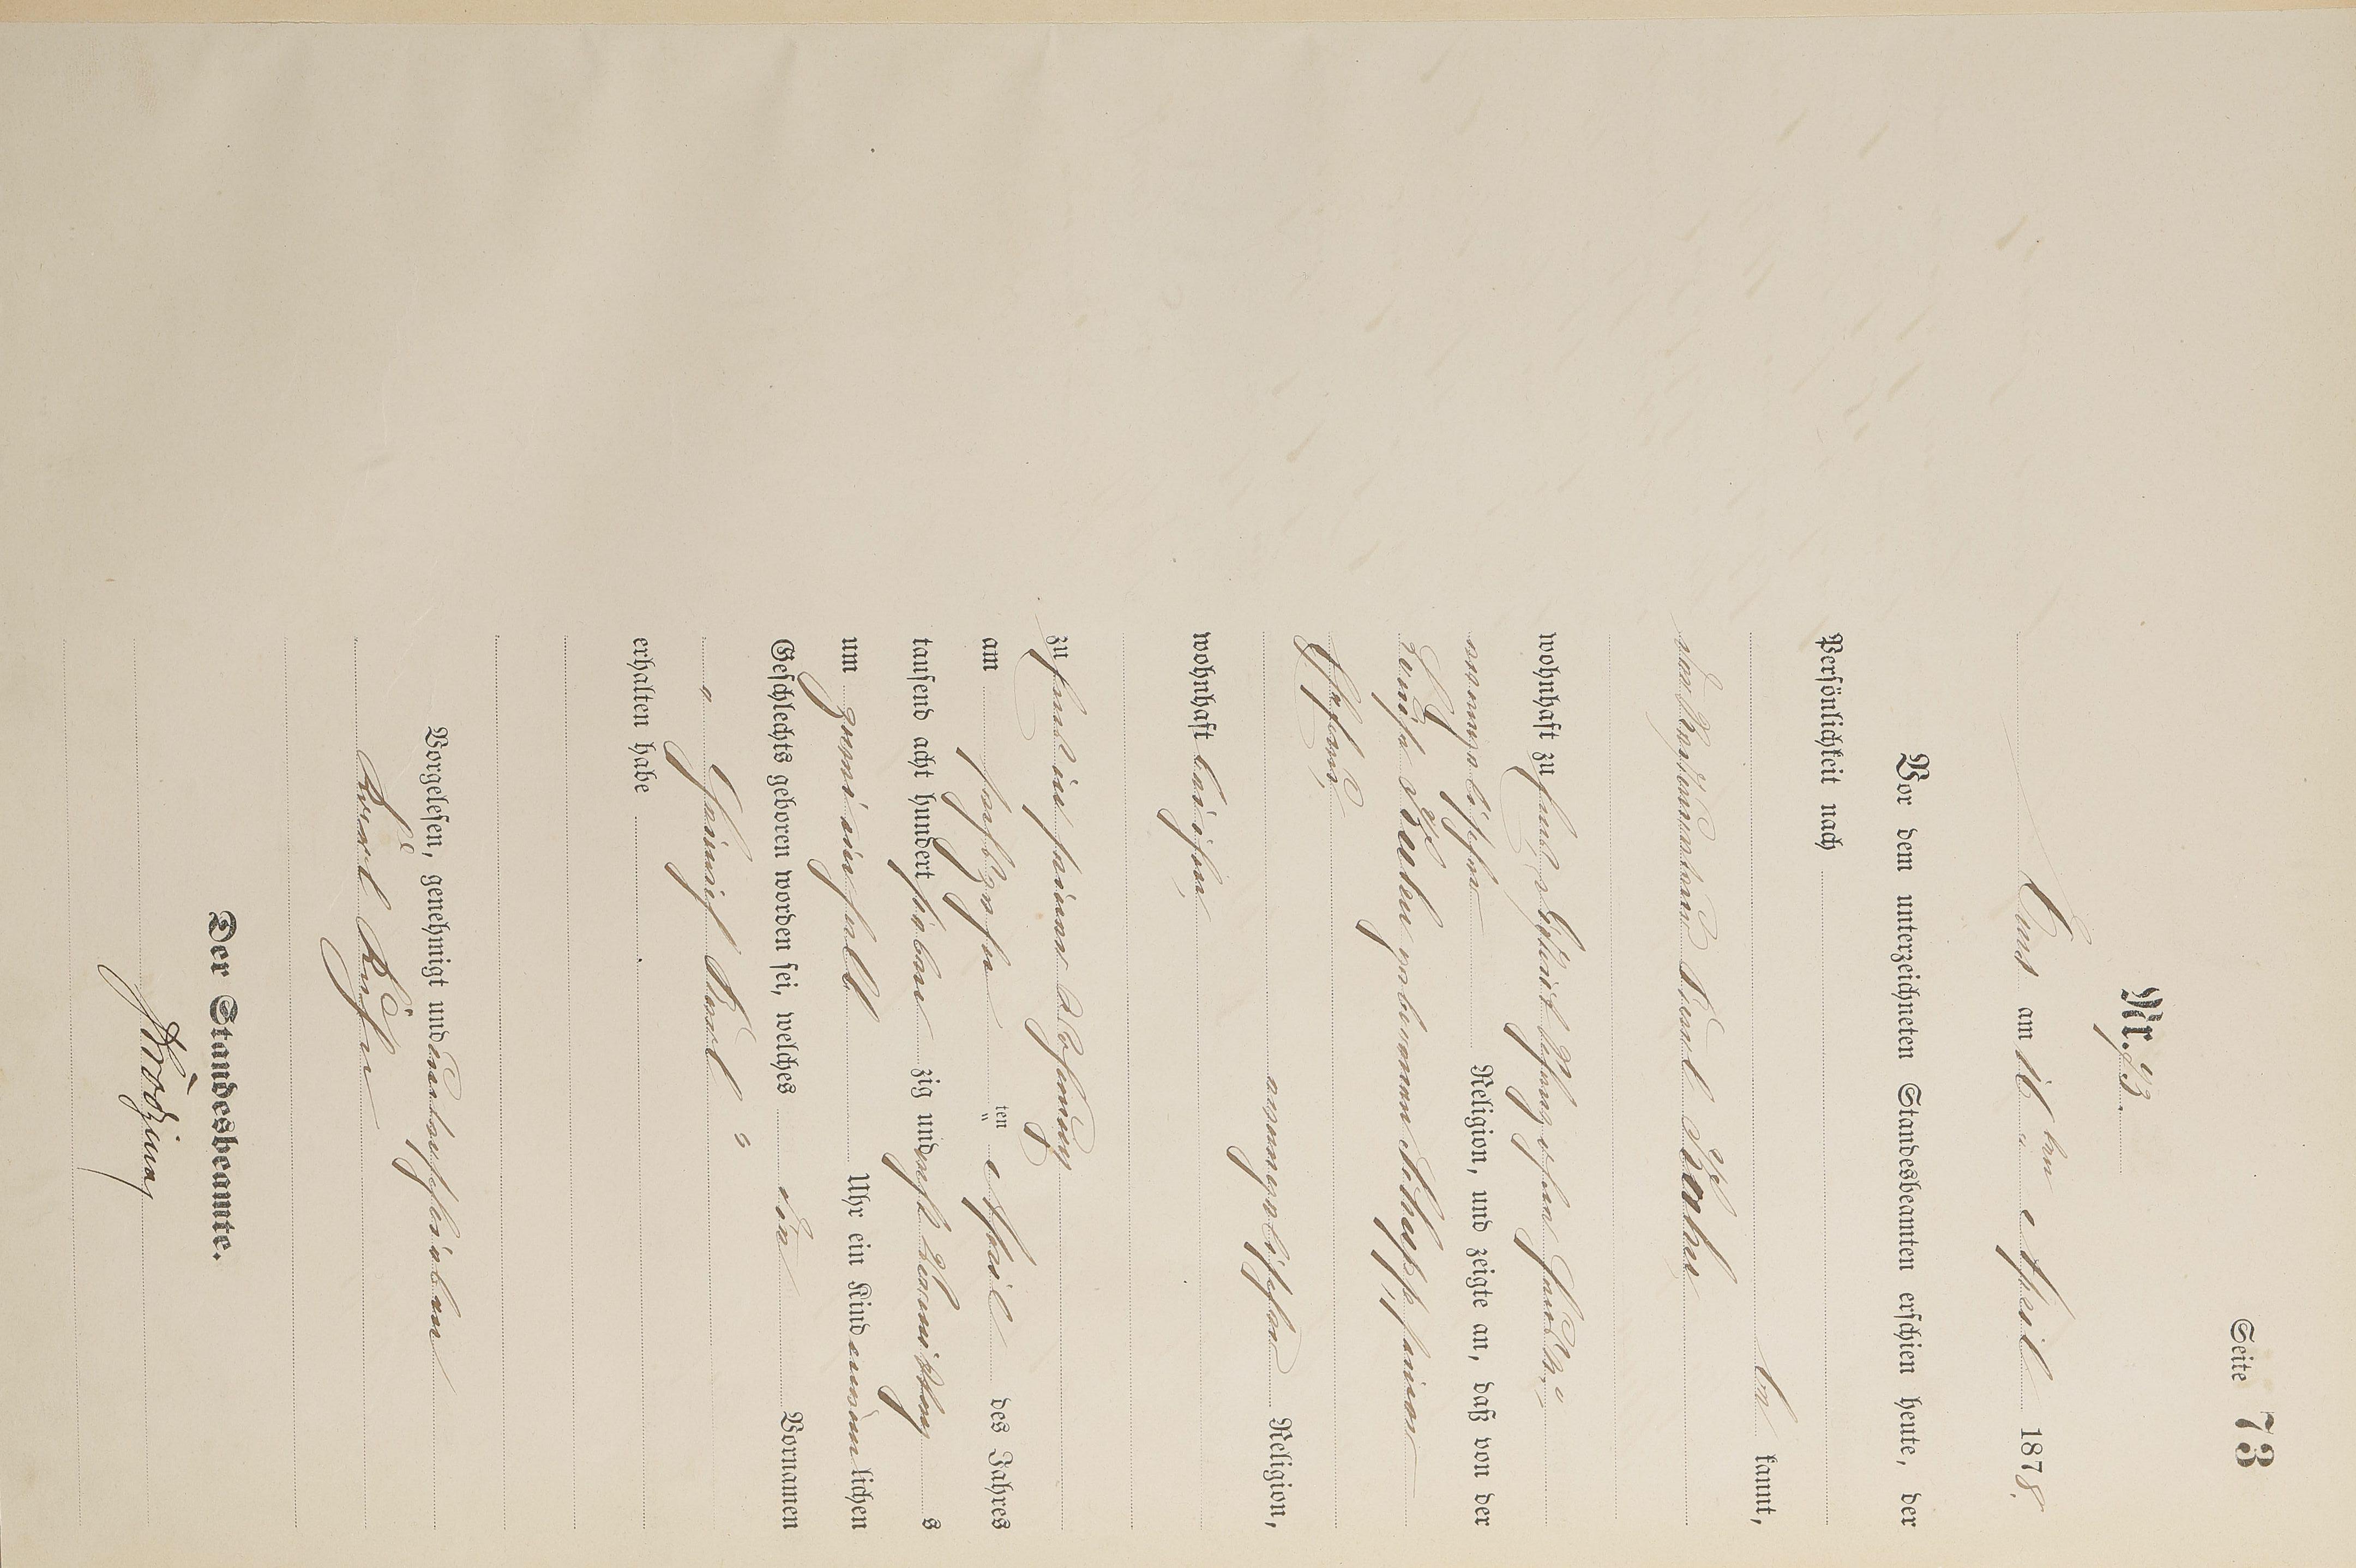 Seite 73
Nr. 73.
Ems am 18ten April 1878.
Vor dem unterzeichneten Standesbeamten erschien heute, der
Persönlichkeit nach
be kannt,
Karl Kuhn
wohnhaft zu
evangelischer Religion, und zeigte an, daß von der
Louise Kuhn geborenen Schupp, seiner
Ehefrau,
evangelischer Religion,
wohnhaft bei ihm,
zu Ems in seiner Wohnung
am sechszehn ten April des Jahres
tausend acht hundert sieben zig und acht Vormittag s
um zwei einhalb Uhr ein Kind männ lichen
Geschlechts geboren worden sei, welches ein Vornamen
" Heinrich Karl "
erhalten habe
Vorgelesen, genehmigt und unterschrieben
Karl Kuhn
Der Standesbeamte.